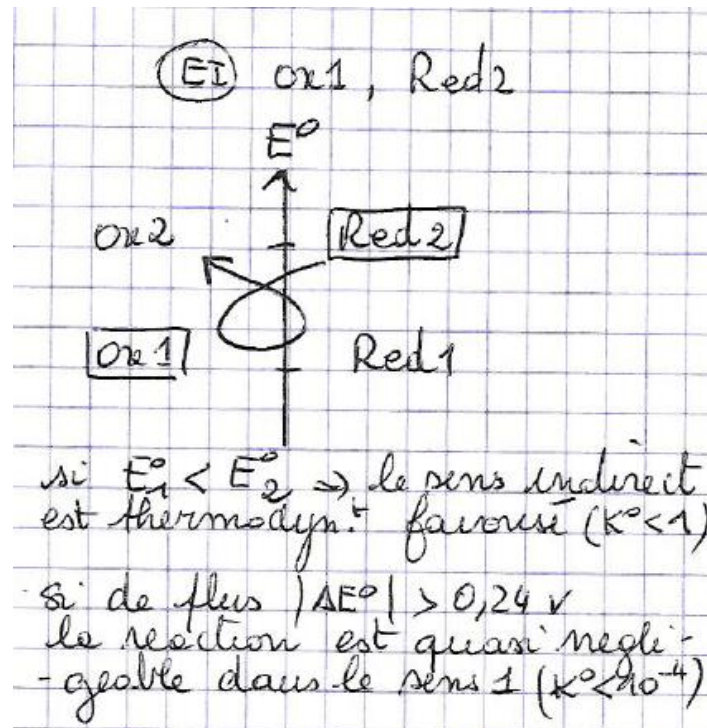 EI ox1, Red2
E°
ox2 Red2
ox1 Red1
si E°1 < E°2 ⇒ le sens indirect
est thermodyn.t favorisé (K°<1)
si de plus |ΔE°| > 0,24 V
la reaction est quasi negli-
-geable dans le sens 1 (K°<10⁻⁴)